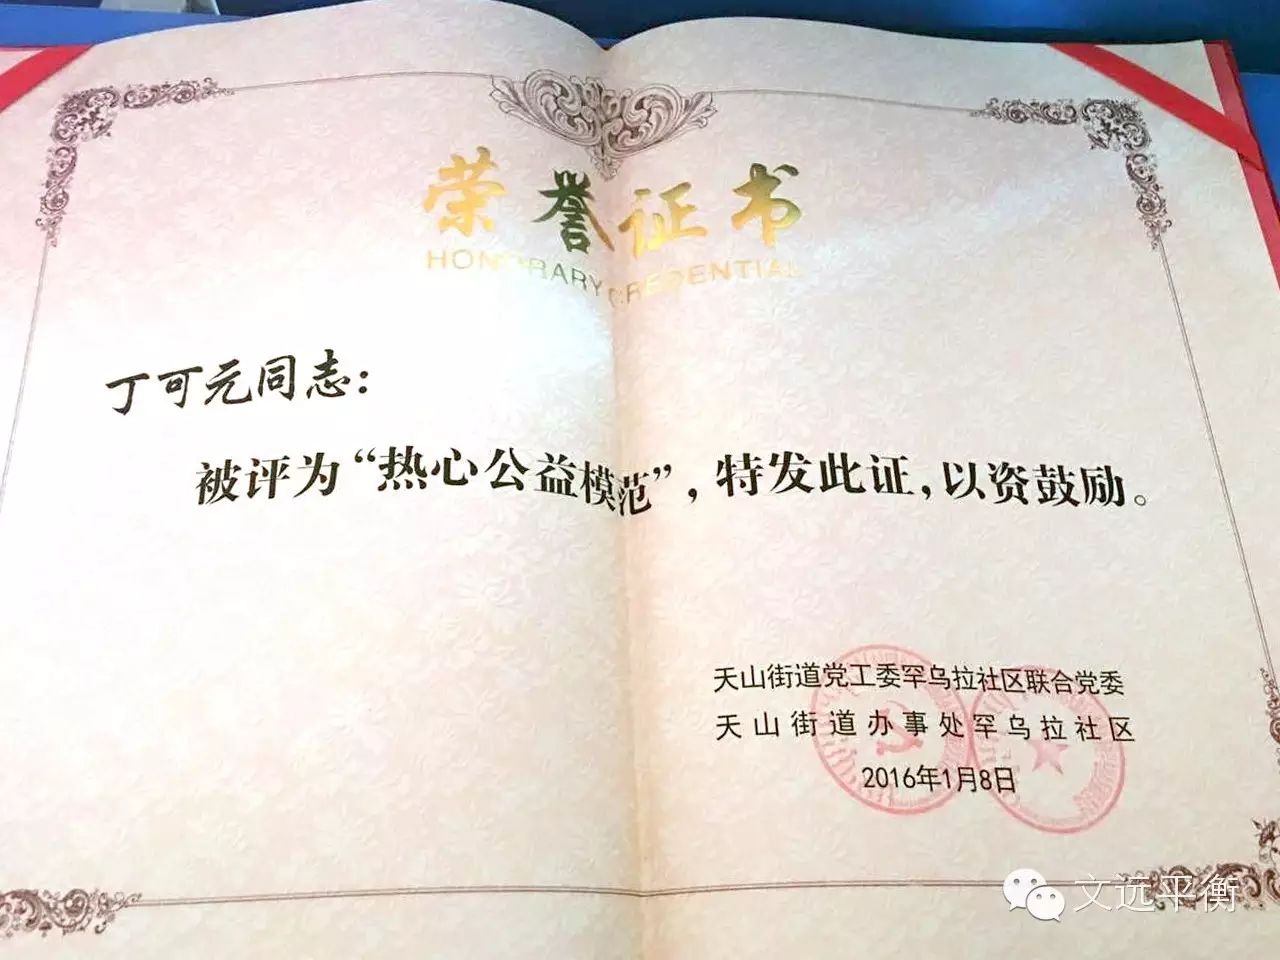 荣誉证书
HONORARY CREDENTIAL
丁可元同志：
被评为“热心公益模范”，特发此证，以资鼓励。
天山街道党工委罕乌拉社区联合党委
天山街道办事处罕乌拉社区
2016年1月8日
文远平衡